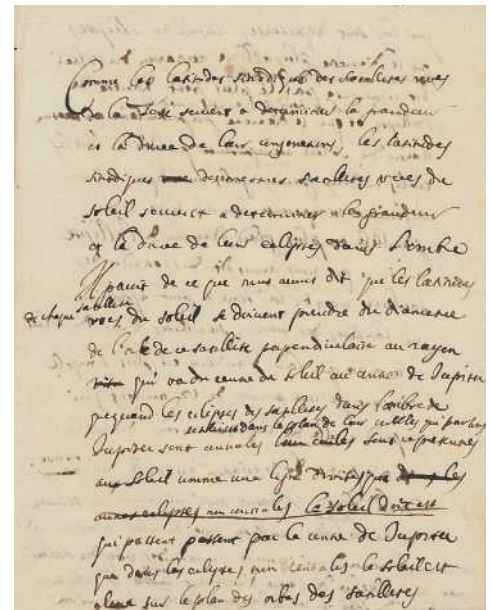 Comme les latitudes sinodiques des satellites vues
de la Terre servent a determiner la grandeur
et la duree de leurs conjonctions, les latitudes
sinodiques des memes satellites vues du
soleil servent a determiner la grandeur
et la duree de leurs eclipses dans l'ombre
Il paroit de ce que nous avons dit que les latitudes
de chaque satellite
vues du soleil se doivent prendre du diametre
de l'orbe de ce satellite perpendiculaire au rayon
qui va du centre du soleil au centre de Jupiter
que quand les eclipses des satellites dans l'ombre de
dans le plan de leurs cercles qui
Jupiter sont centrales
au soleil comme une ligne droite que les
autres eclipses non centrales le soleil
qui passent par le centre de Jupiter
que dans les eclipses non centrales le soleil est
eleve sur le plan des orbes des satellites